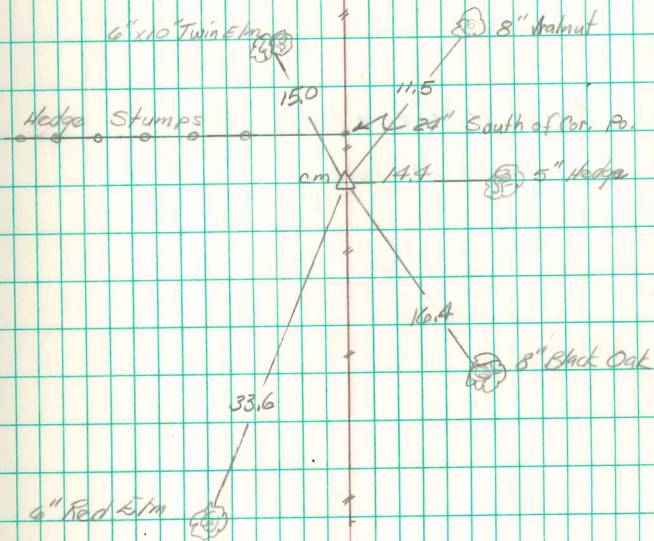 6" x10" Twin Elm
8" Walnut
15.0
11.5
Hedge Stumps
24" South of Cor. Po.
cm
14.4
5" Hedge
16.4
8" Black Oak
33.6
6" Red Elm